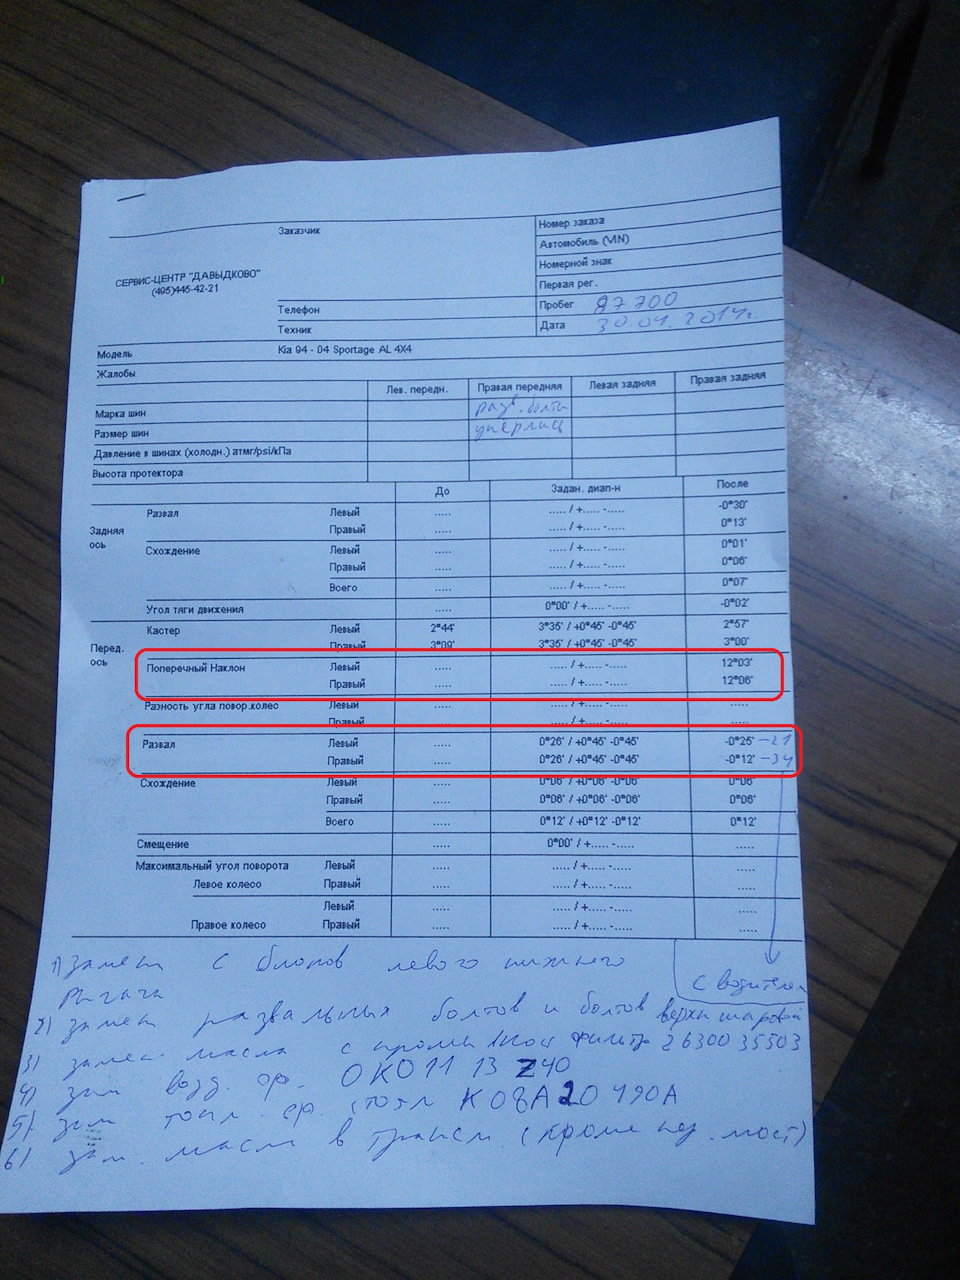 Заказчик
Номер заказа
Автомобиль (VIN)
Номерной знак
Первая рег.
СЕРВИС-ЦЕНТР "ДАВЫДКОВО"
(495)445-42-21
Телефон
Пробег 87700
Техник
Дата 30.04.2014г.
Модель Kia 94 - 04 Sportage AL 4X4
Жалобы
Лев. передн. Правая передняя Левая задняя Правая задняя
Марка шин разв. болты
Размер шин уперлись
Давление в шинах (холодн.) атмг/psi/кПа
Высота протектора
До Задан. диап-н После
Задняя ось
Развал Левый ..... ..... / +..... -..... -0°30'
Правый ..... ..... / +..... -..... 0°13'
Схождение Левый ..... ..... / +..... -..... 0°01'
Правый ..... ..... / +..... -..... 0°06'
Всего ..... ..... / +..... -..... 0°07'
Угол тяги движения ..... 0°00' / +..... -..... -0°02'
Перед. ось
Кастер Левый 2°44' 3°35' / +0°45' -0°45' 2°57'
Правый 3°09' 3°35' / +0°45' -0°45' 3°00'
Поперечный Наклон Левый ..... ..... / +..... -..... 12°03'
Правый ..... ..... / +..... -..... 12°06'
Разность угла повор.колес Левый ..... ..... / +..... -..... .....
Правый ..... ..... / +..... -..... .....
Развал Левый ..... 0°26' / +0°45' -0°45' -0°25' -21
Правый ..... 0°26' / +0°45' -0°45' -0°12' -34
Схождение Левый ..... 0°06' / +0°06' -0°06' 0°06'
Правый ..... 0°06' / +0°06' -0°06' 0°06'
Всего ..... 0°12' / +0°12' -0°12' 0°12'
Смещение ..... 0°00' / +..... -..... .....
Максимальный угол поворота
Левое колесо
Левый ..... ..... / +..... -..... .....
Правый ..... ..... / +..... -..... .....
Правое колесо
Левый ..... ..... / +..... -..... .....
Правый ..... ..... / +..... -..... .....
с водителем
1) замен с блоков левого нижнего
рычага
2) замен развальных болтов и болтов верхн шаровой
3) замен масла с пром фильтр 26300 35503
4) зам возд. ф. OK011 13 Z40
5) зам топл. ф. K08A20490A
6) зам. масла в трансм. (кроме пер. мост)